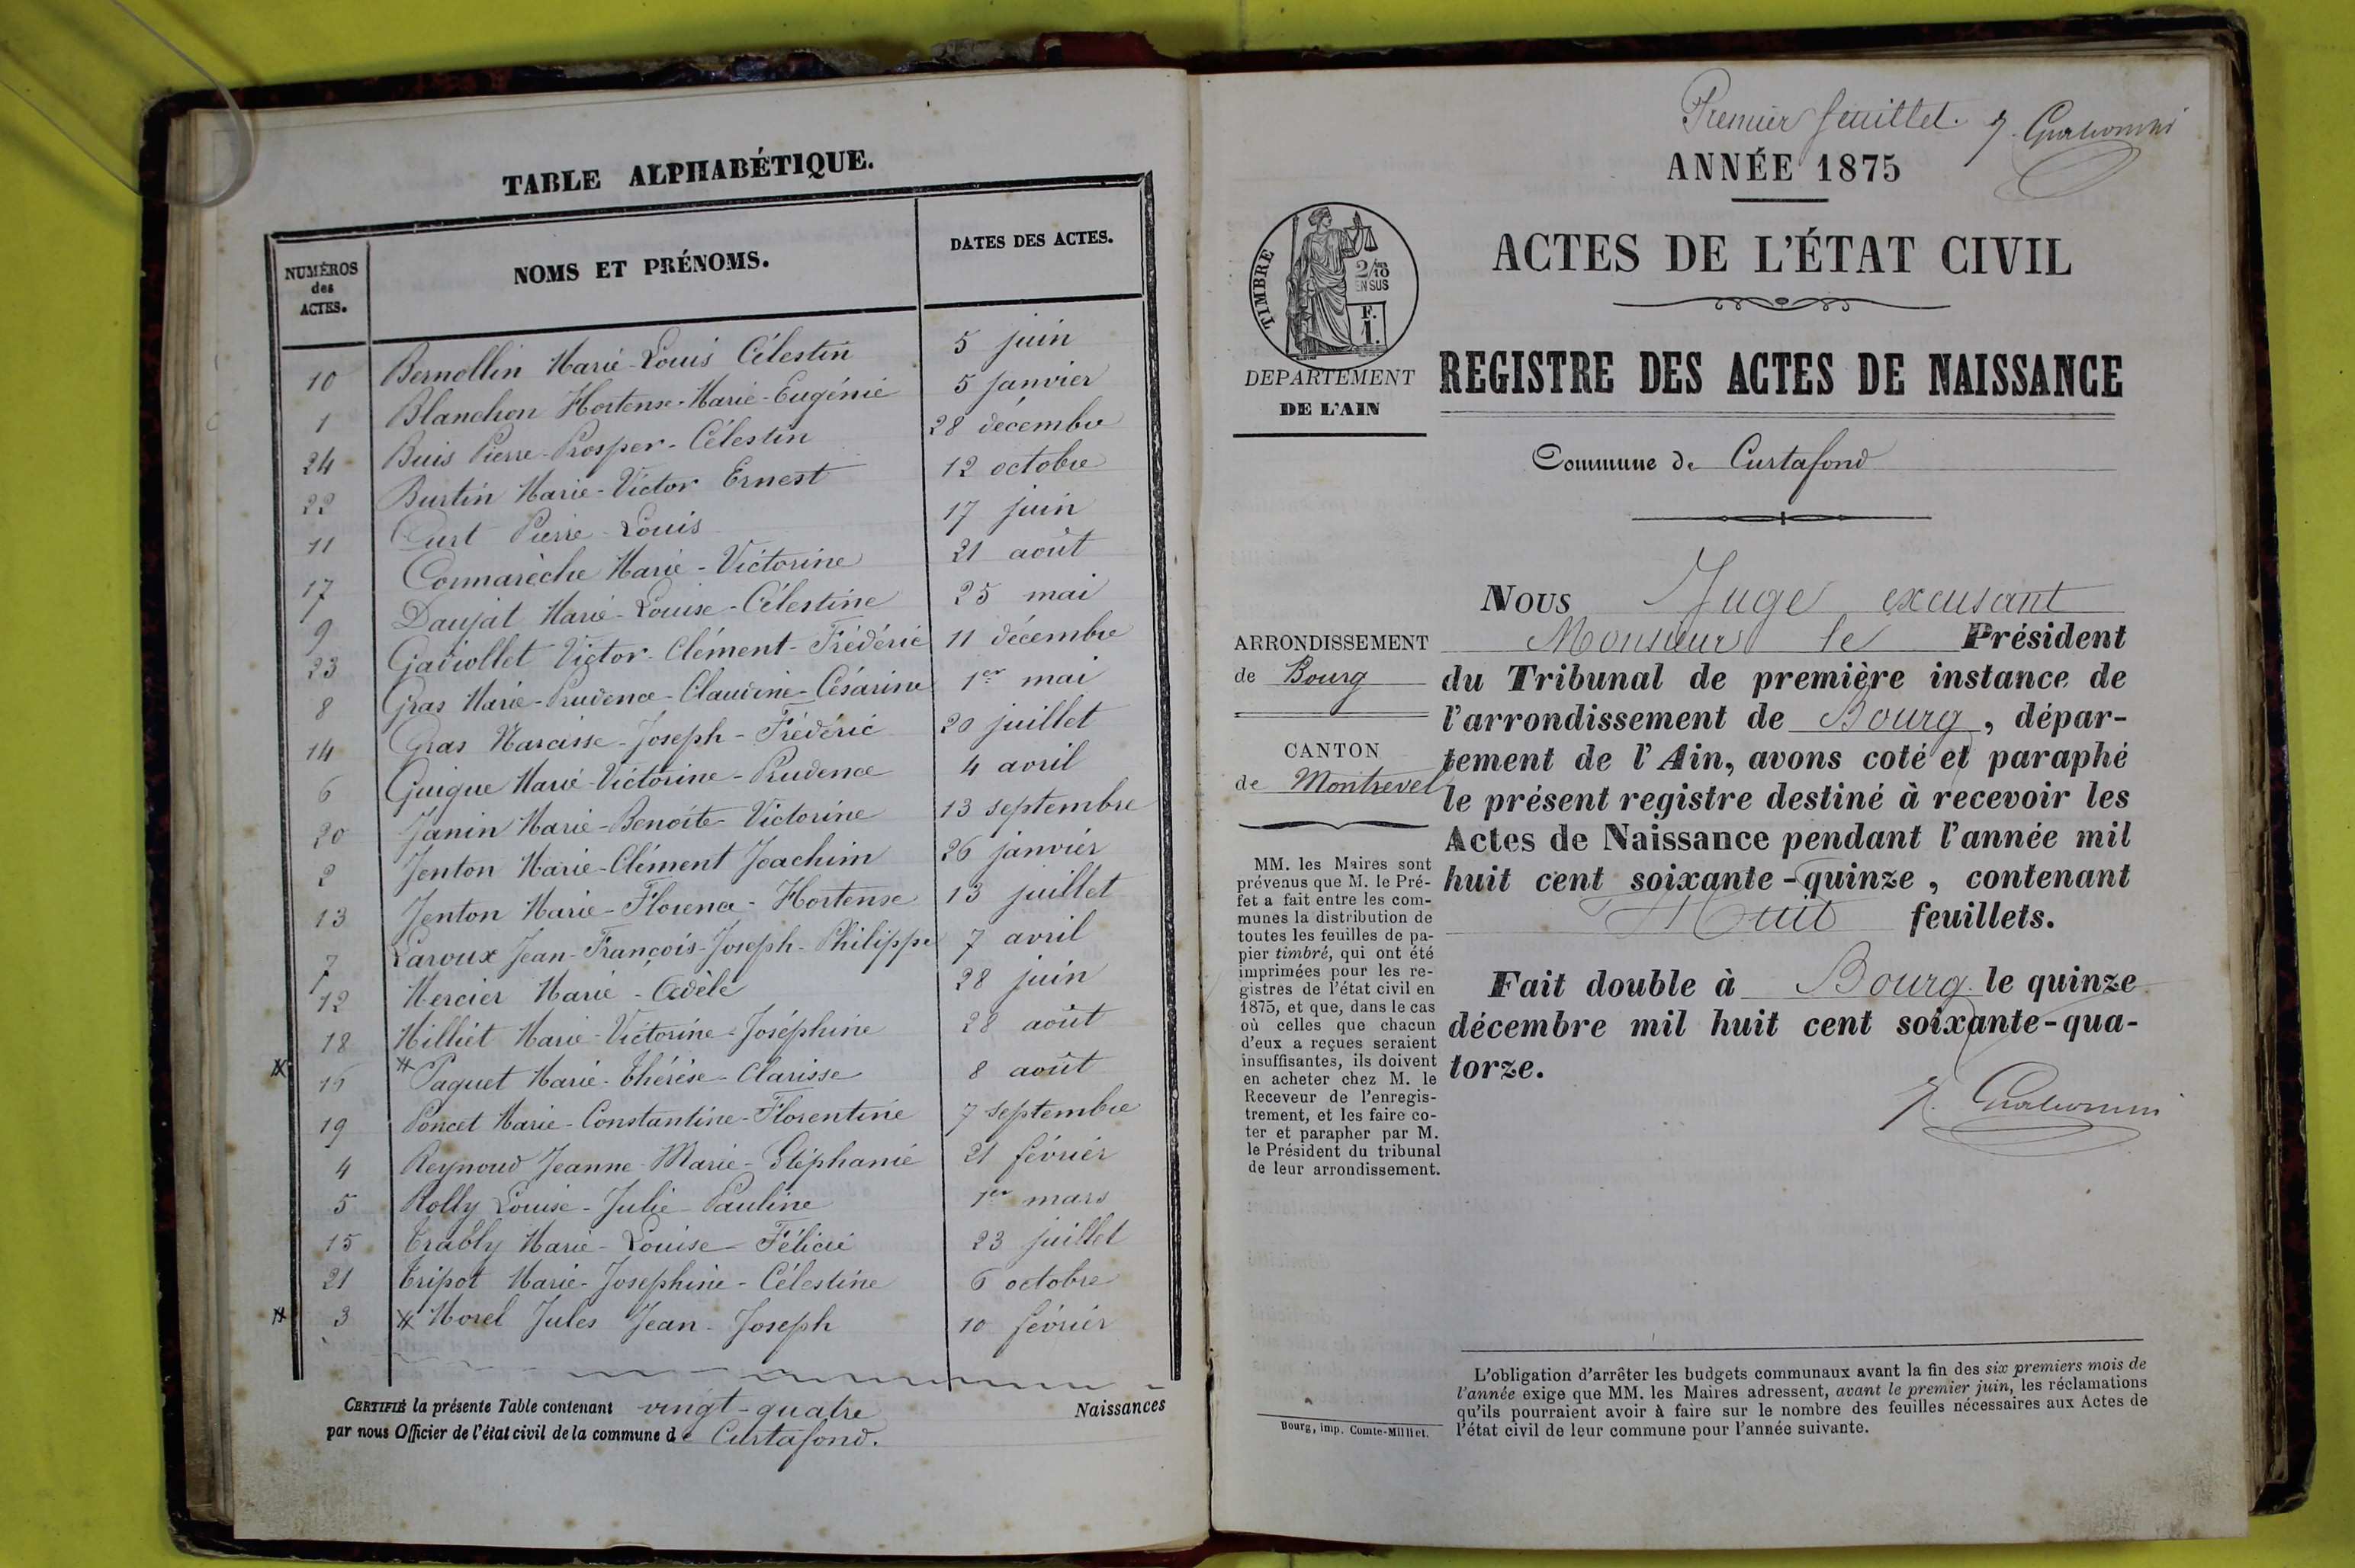 TABLE ALPHABÉTIQUE.
NUMÉROS des ACTES. NOMS ET PRÉNOMS. DATES DES ACTES.
10 Bernollin Marie-Louis Célestin 5 juin
1 Blanchon Hortense-Marie-Eugénie 5 janvier
24 Buis Pierre-Prosper-Célestin 28 décembre
22 Burtin Marie-Victor Ernest 12 octobre
11 Curt Pierre-Louis 17 juin
17 Conmarèche Marie-Victorine 21 août
9 Daujat Marie-Louise-Célestine 25 mai
23 Gadiollet Victor-Clément-Frédéric 11 décembre
8 Gras Marie-Prudence-Claudine-Césarine 1er mai
14 Gras Narcisse-Joseph-Frédéric 20 juillet
6 Guigue Marie-Victorine-Prudence 4 avril
20 Janin Marie-Benoîte-Victorine 13 septembre
2 Jenton Marie-Clément Joachim 26 janvier
13 Jenton Marie-Florence-Hortense 13 juillet
7 Laroux Jean-François-Joseph-Philippe 7 avril
12 Mercier Marie-Adèle 28 juin
18 Milliet Marie-Victorine-Joséphine 28 août
16 Paquet Marie-Thérèse-Clarisse 8 août
19 Poncet Marie-Constantine-Florentine 7 septembre
4 Reynoud Jeanne-Marie-Stéphanie 21 février
5 Rolly Louise-Julie-Pauline 1er mars
15 Trably Marie-Louise-Félicie 23 juillet
21 Tripot Marie-Josephine-Célestine 6 octobre
3 Morel Jules Jean-Joseph 10 février
CERTIFIÉ la présente Table contenant vingt-quatre Naissances
par nous Officier de l'état civil de la commune de Curtafond.
Premier feuillet.
ANNÉE 1875
ACTES DE L'ÉTAT CIVIL
TIMBRE
2/10
EN SUS
F.
1.
DEPARTEMENT
DE L'AIN
REGISTRE DES ACTES DE NAISSANCE
Commune de Curtafond
ARRONDISSEMENT
de Bourg
CANTON
de Montrevel
MM. les Maires sont
prévenus que M. le Pré-
fet a fait entre les com-
munes la distribution de
toutes les feuilles de pa-
pier timbré, qui ont été
imprimées pour les re-
gistres de l'état civil en
1875, et que, dans le cas
où celles que chacun
d'eux a reçues seraient
insuffisantes, ils doivent
en acheter chez M. le
Receveur de l'enregis-
trement, et les faire co-
ter et parapher par M.
le Président du tribunal
de leur arrondissement.
Nous Juge excusant
Monsieur le Président
du Tribunal de première instance de
l'arrondissement de Bourg, dépar-
tement de l'Ain, avons coté et paraphé
le présent registre destiné à recevoir les
Actes de Naissance pendant l'année mil
huit cent soixante-quinze, contenant
Huit feuillets.
Fait double à Bourg le quinze
décembre mil huit cent soixante-qua-
torze.
L'obligation d'arrêter les budgets communaux avant la fin des six premiers mois de
l'année exige que MM. les Maires adressent, avant le premier juin, les réclamations
qu'ils pourraient avoir à faire sur le nombre des feuilles nécessaires aux Actes de
l'état civil de leur commune pour l'année suivante.
Bourg, imp. Comte-Milliet.